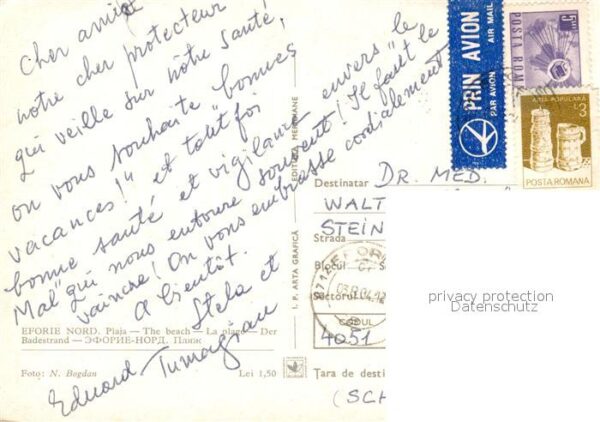 Cher ami et
notre cher protecteur
qui veille sur notre santé,
on vous souhaite bonnes
vacances!" et "tout foi
bonne santé et vigilance envers "le
Mal" qui nous entoure souvent! Il faut le
vaincre! On vous embrasse cordialement
A bientôt.
Stela et
Eduard Tumagian
EFORIE NORD. Plaja — The beach — La plage — Der
Badestrand — ЭФОРИЕ-НОРД. Пляж
Foto: N. Bogdan
Lei 1,50
I. P. ARTA GRAFICĂ
EDITURA MERIDIANE
PRIN AVION
PAR AVION AIR MAIL
POSTA ROM
5
ARTA POPULARA
3
POSTA ROMANA
Destinatar DR. MED.
WALT
STEIN
Strada
Blocul
Sectorul
CODUL
4051
Țara de desti
(SCH
privacy protection
Datenschutz